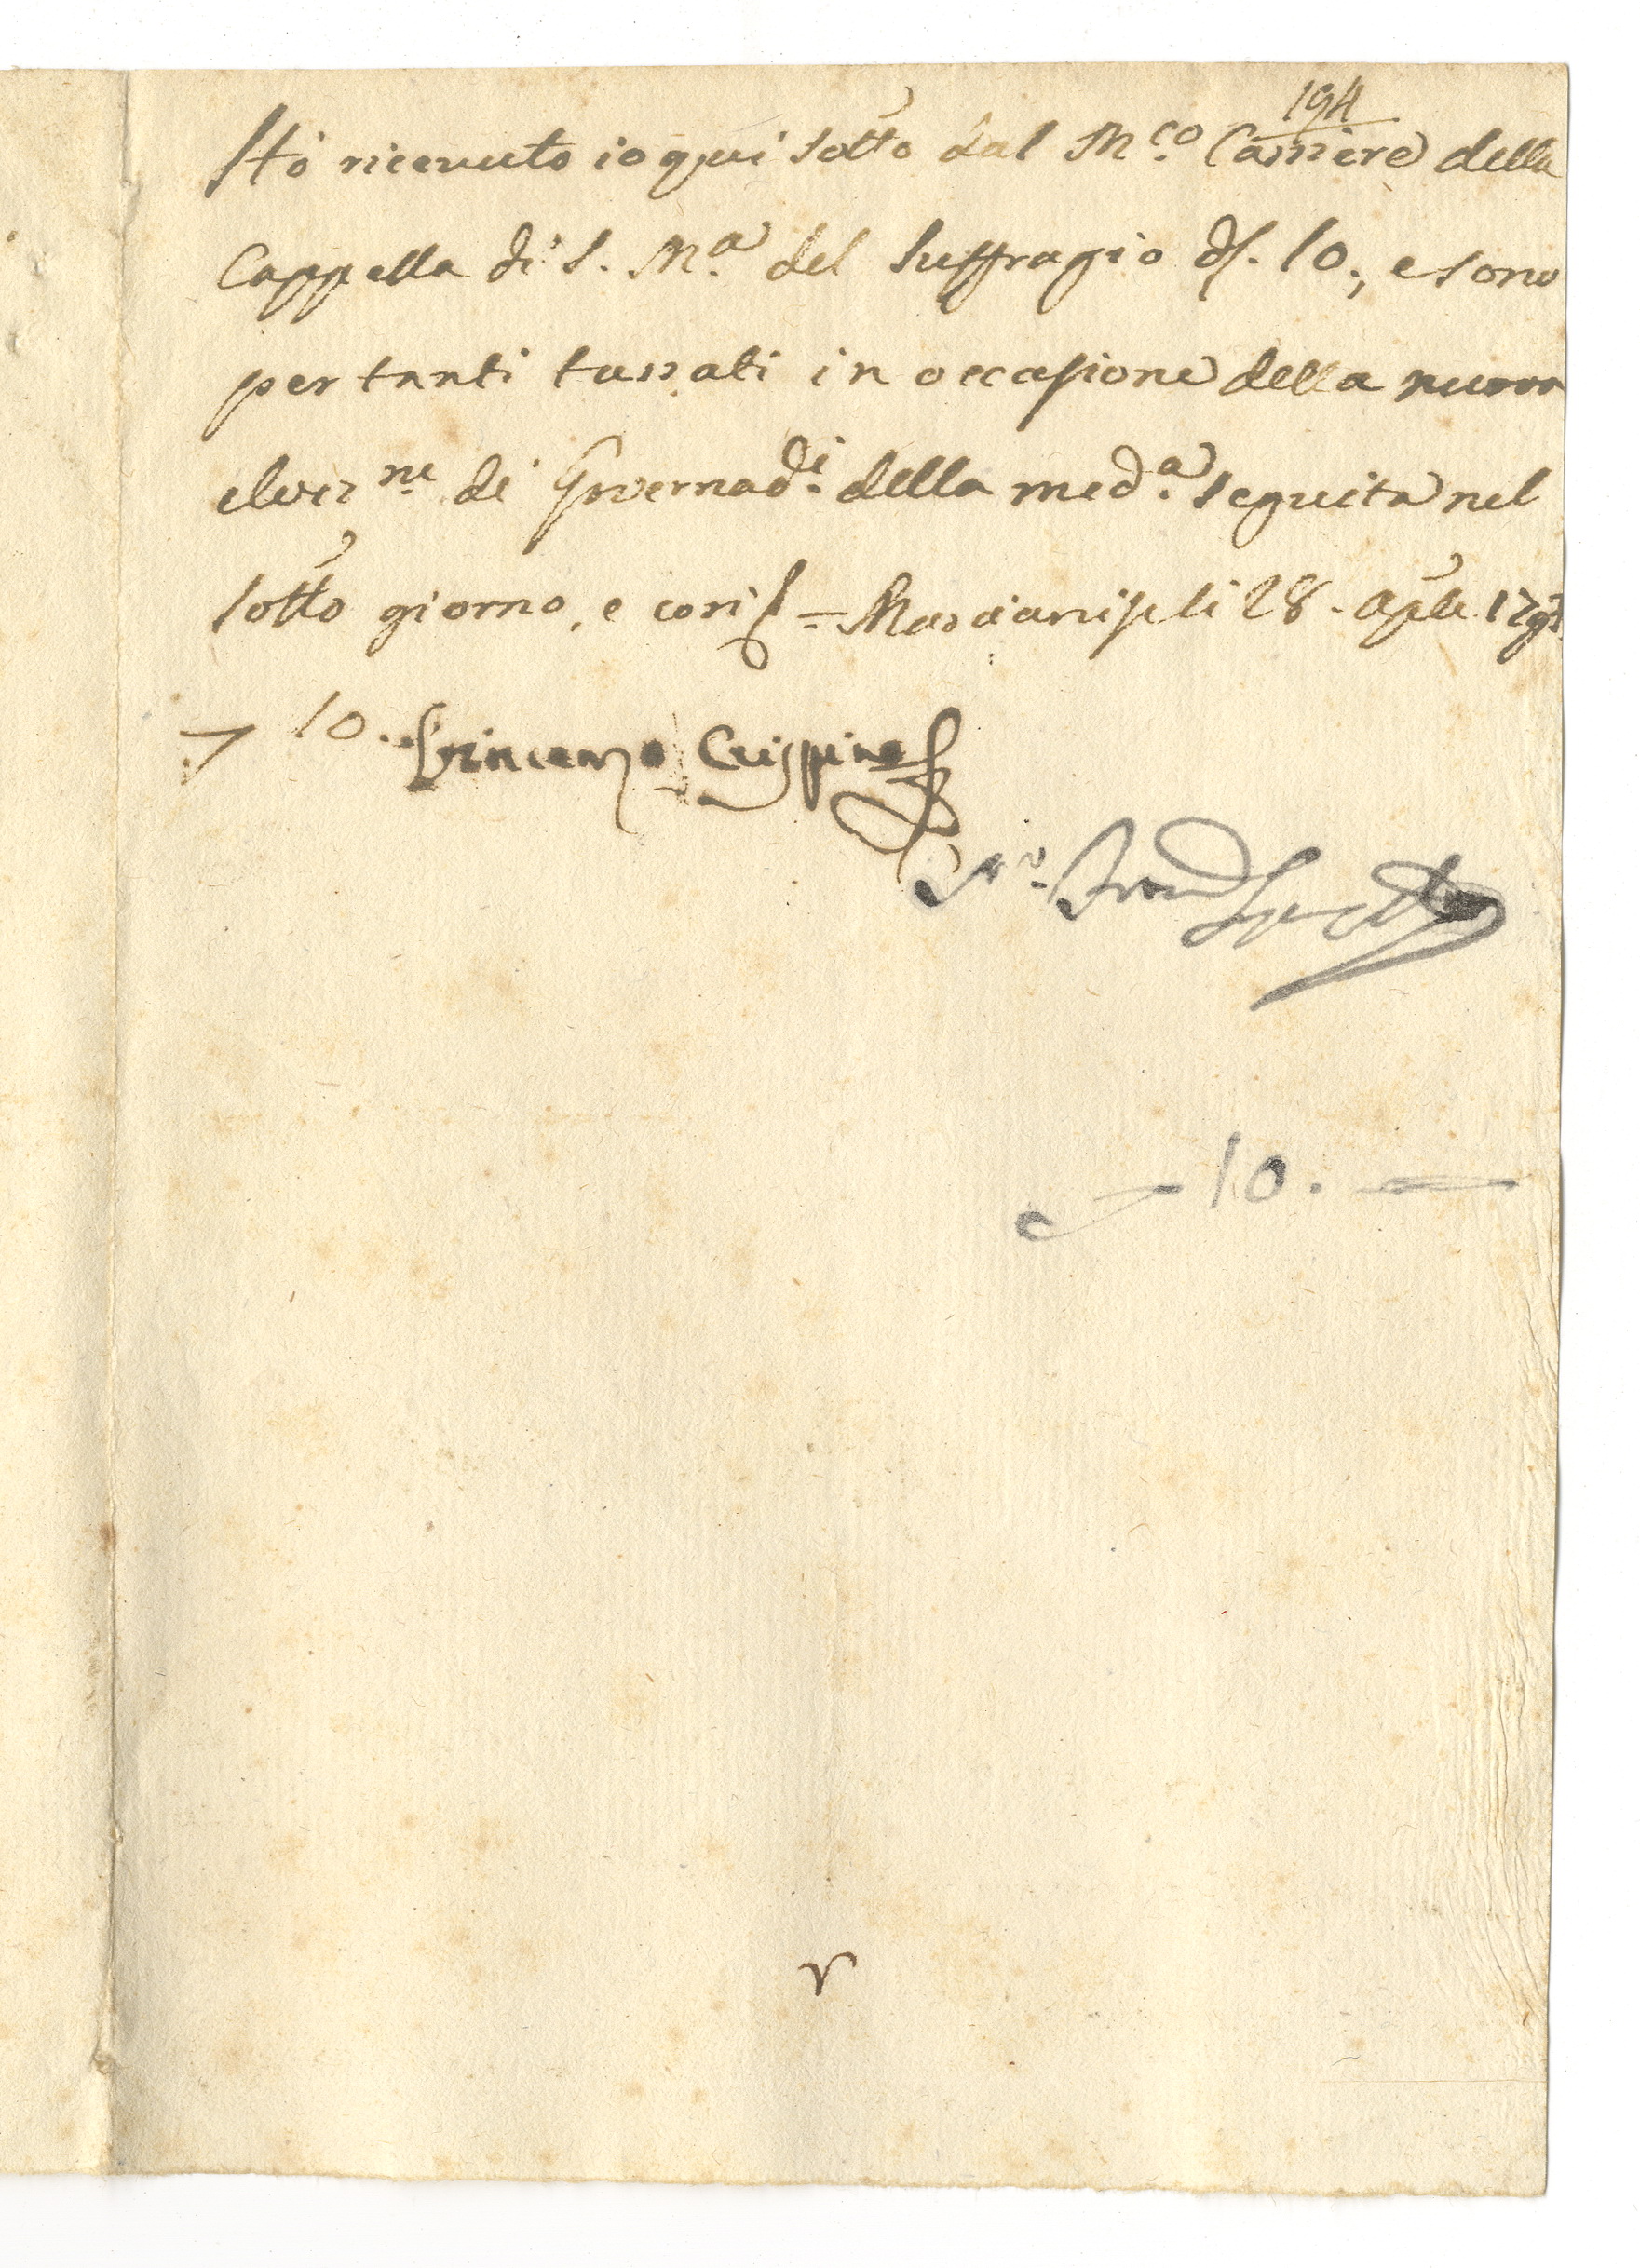 194
Hò ricevuto io qui sotto dal M.co Cassiere della
Cappella di S. M.a del Suffragio d. 10., e sono
per tanti tassati in occasione della nuova
elez.ne di Governad.i della med.a seguita nel
sotto giorno, e così = Marcianise li 28. Aple
10. Vincenzo Crispino
10.